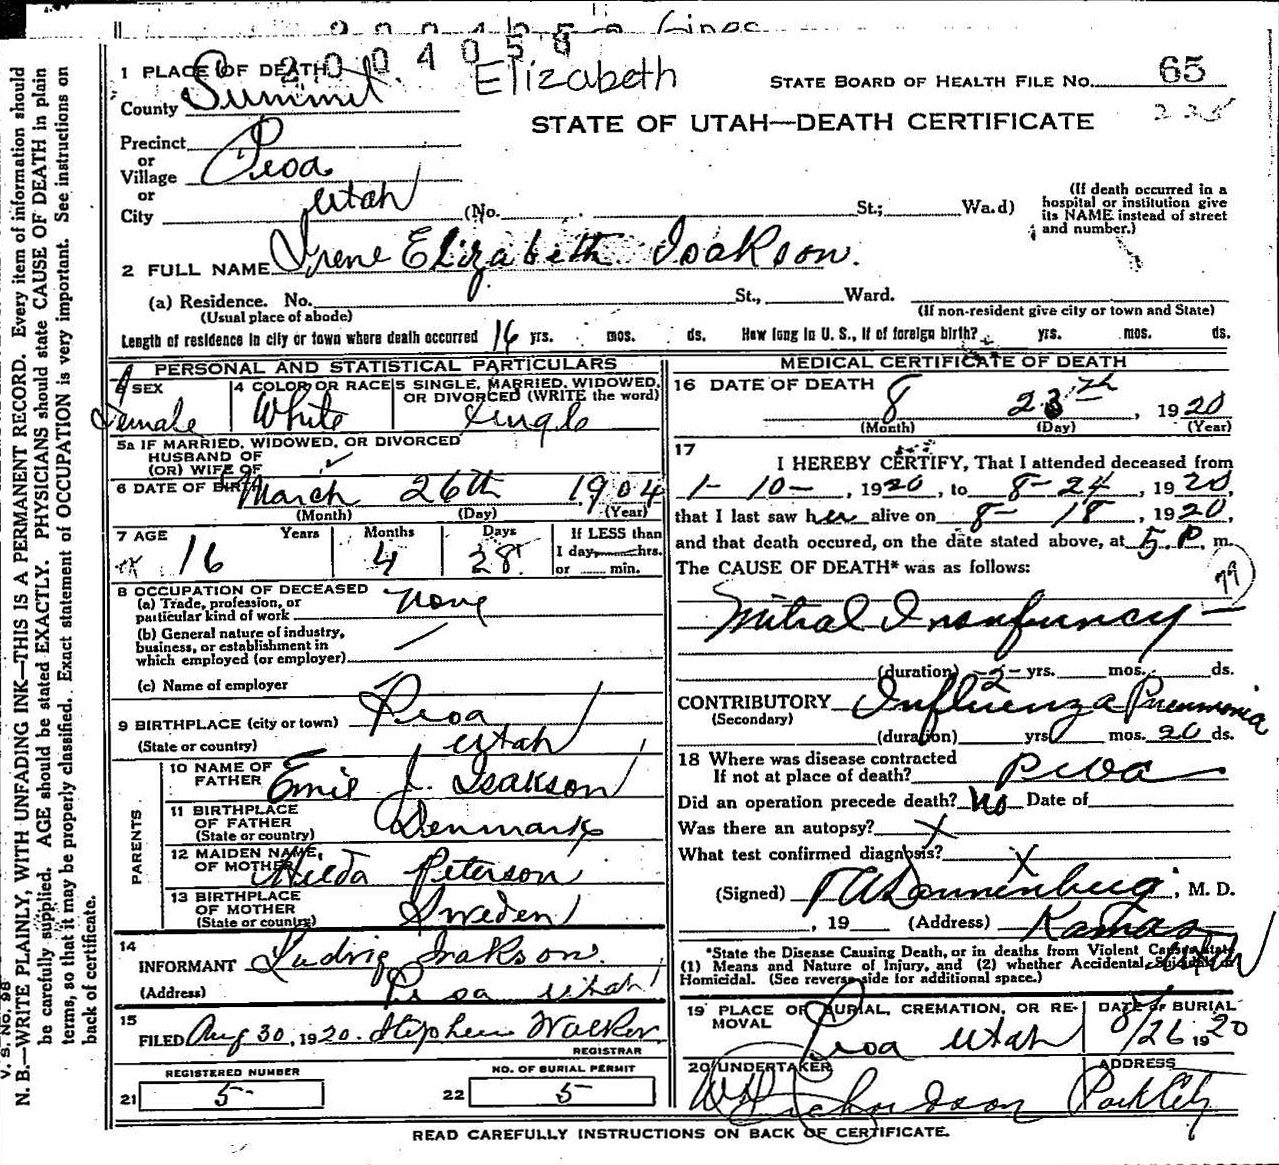 2004058
1 PLACE OF DEATH
Elizabeth
STATE BOARD OF HEALTH FILE NO. 65
County Summit
225
STATE OF UTAH—DEATH CERTIFICATE
Precinct
or
Village Peoa
or
City Utah (No. St.; Ward)
(If death occurred in a
hospital or institution give
its NAME instead of street
and number.)
2 FULL NAME Irene Elizabeth Isakson.
(a) Residence. No. St., Ward.
(Usual place of abode) (If non-resident give city or town and State)
Length of residence in city or town where death occurred 16 yrs. mos. ds. How long in U. S., if of foreign birth? yrs. mos. ds.
PERSONAL AND STATISTICAL PARTICULARS
SEX
Female
4 COLOR OR RACE
White
5 SINGLE, MARRIED, WIDOWED,
OR DIVORCED (WRITE the word)
Single
5a IF MARRIED, WIDOWED, OR DIVORCED
HUSBAND OF
(OR) WIFE OF
6 DATE OF BIRTH March 26th 1904
(Month) (Day) (Year)
7 AGE Years Months Days
16 4 28
If LESS than
1 day, hrs.
or min.
8 OCCUPATION OF DECEASED
(a) Trade, profession, or
particular kind of work None
(b) General nature of industry,
business, or establishment in
which employed (or employer)
(c) Name of employer
9 BIRTHPLACE (city or town) Peoa
(State or country) Utah
PARENTS
10 NAME OF
FATHER Emil J. Isakson
11 BIRTHPLACE
OF FATHER
(State or country) Denmark
12 MAIDEN NAME
OF MOTHER Hilda Peterson
13 BIRTHPLACE
OF MOTHER
(State or country) Sweden
14
INFORMANT Ludvig Isakson.
(Address) Peoa Utah
15
FILED Aug 30, 1920. Stephen Walker
REGISTRAR
REGISTERED NUMBER
21 5
NO. OF BURIAL PERMIT
22 5
MEDICAL CERTIFICATE OF DEATH
16 DATE OF DEATH 8 23th, 1920
(Month) (Day) (Year)
17
I HEREBY CERTIFY, That I attended deceased from
1-10-, 1920, to 8-24, 1920,
that I last saw her alive on 8-18, 1920,
and that death occured, on the date stated above, at 5 P. m.
The CAUSE OF DEATH* was as follows:
79
Mitral Insufuncy
(duration) -2- yrs. mos. ds.
CONTRIBUTORY Influenza Pneumonia
(Secondary)
(duration) yrs. mos. 20 ds.
18 Where was disease contracted
If not at place of death? Peoa
Did an operation precede death? No Date of
Was there an autopsy? X
What test confirmed diagnosis? X
(Signed) Dannenberg, M. D.
, 19 (Address) Kamas
Utah
*State the Disease Causing Death, or in deaths from Violent Causes state
(1) Means and Nature of Injury, and (2) whether Accidental, Suicidal or
Homicidal. (See reverse side for additional space.)
19 PLACE OF BURIAL, CREMATION, OR RE-
MOVAL
Peoa Utah
DATE OF BURIAL
8/26 1920
20 UNDERTAKER
W Richardson
ADDRESS
Park City
READ CAREFULLY INSTRUCTIONS ON BACK OF CERTIFICATE.
V. S. NO. 98
N. B.—WRITE PLAINLY, WITH UNFADING INK—THIS IS A PERMANENT RECORD. Every item of information should
be carefully supplied. AGE should be stated EXACTLY. PHYSICIANS should state CAUSE OF DEATH in plain
terms, so that it may be properly classified. Exact statement of OCCUPATION is very important. See instructions on
back of certificate.